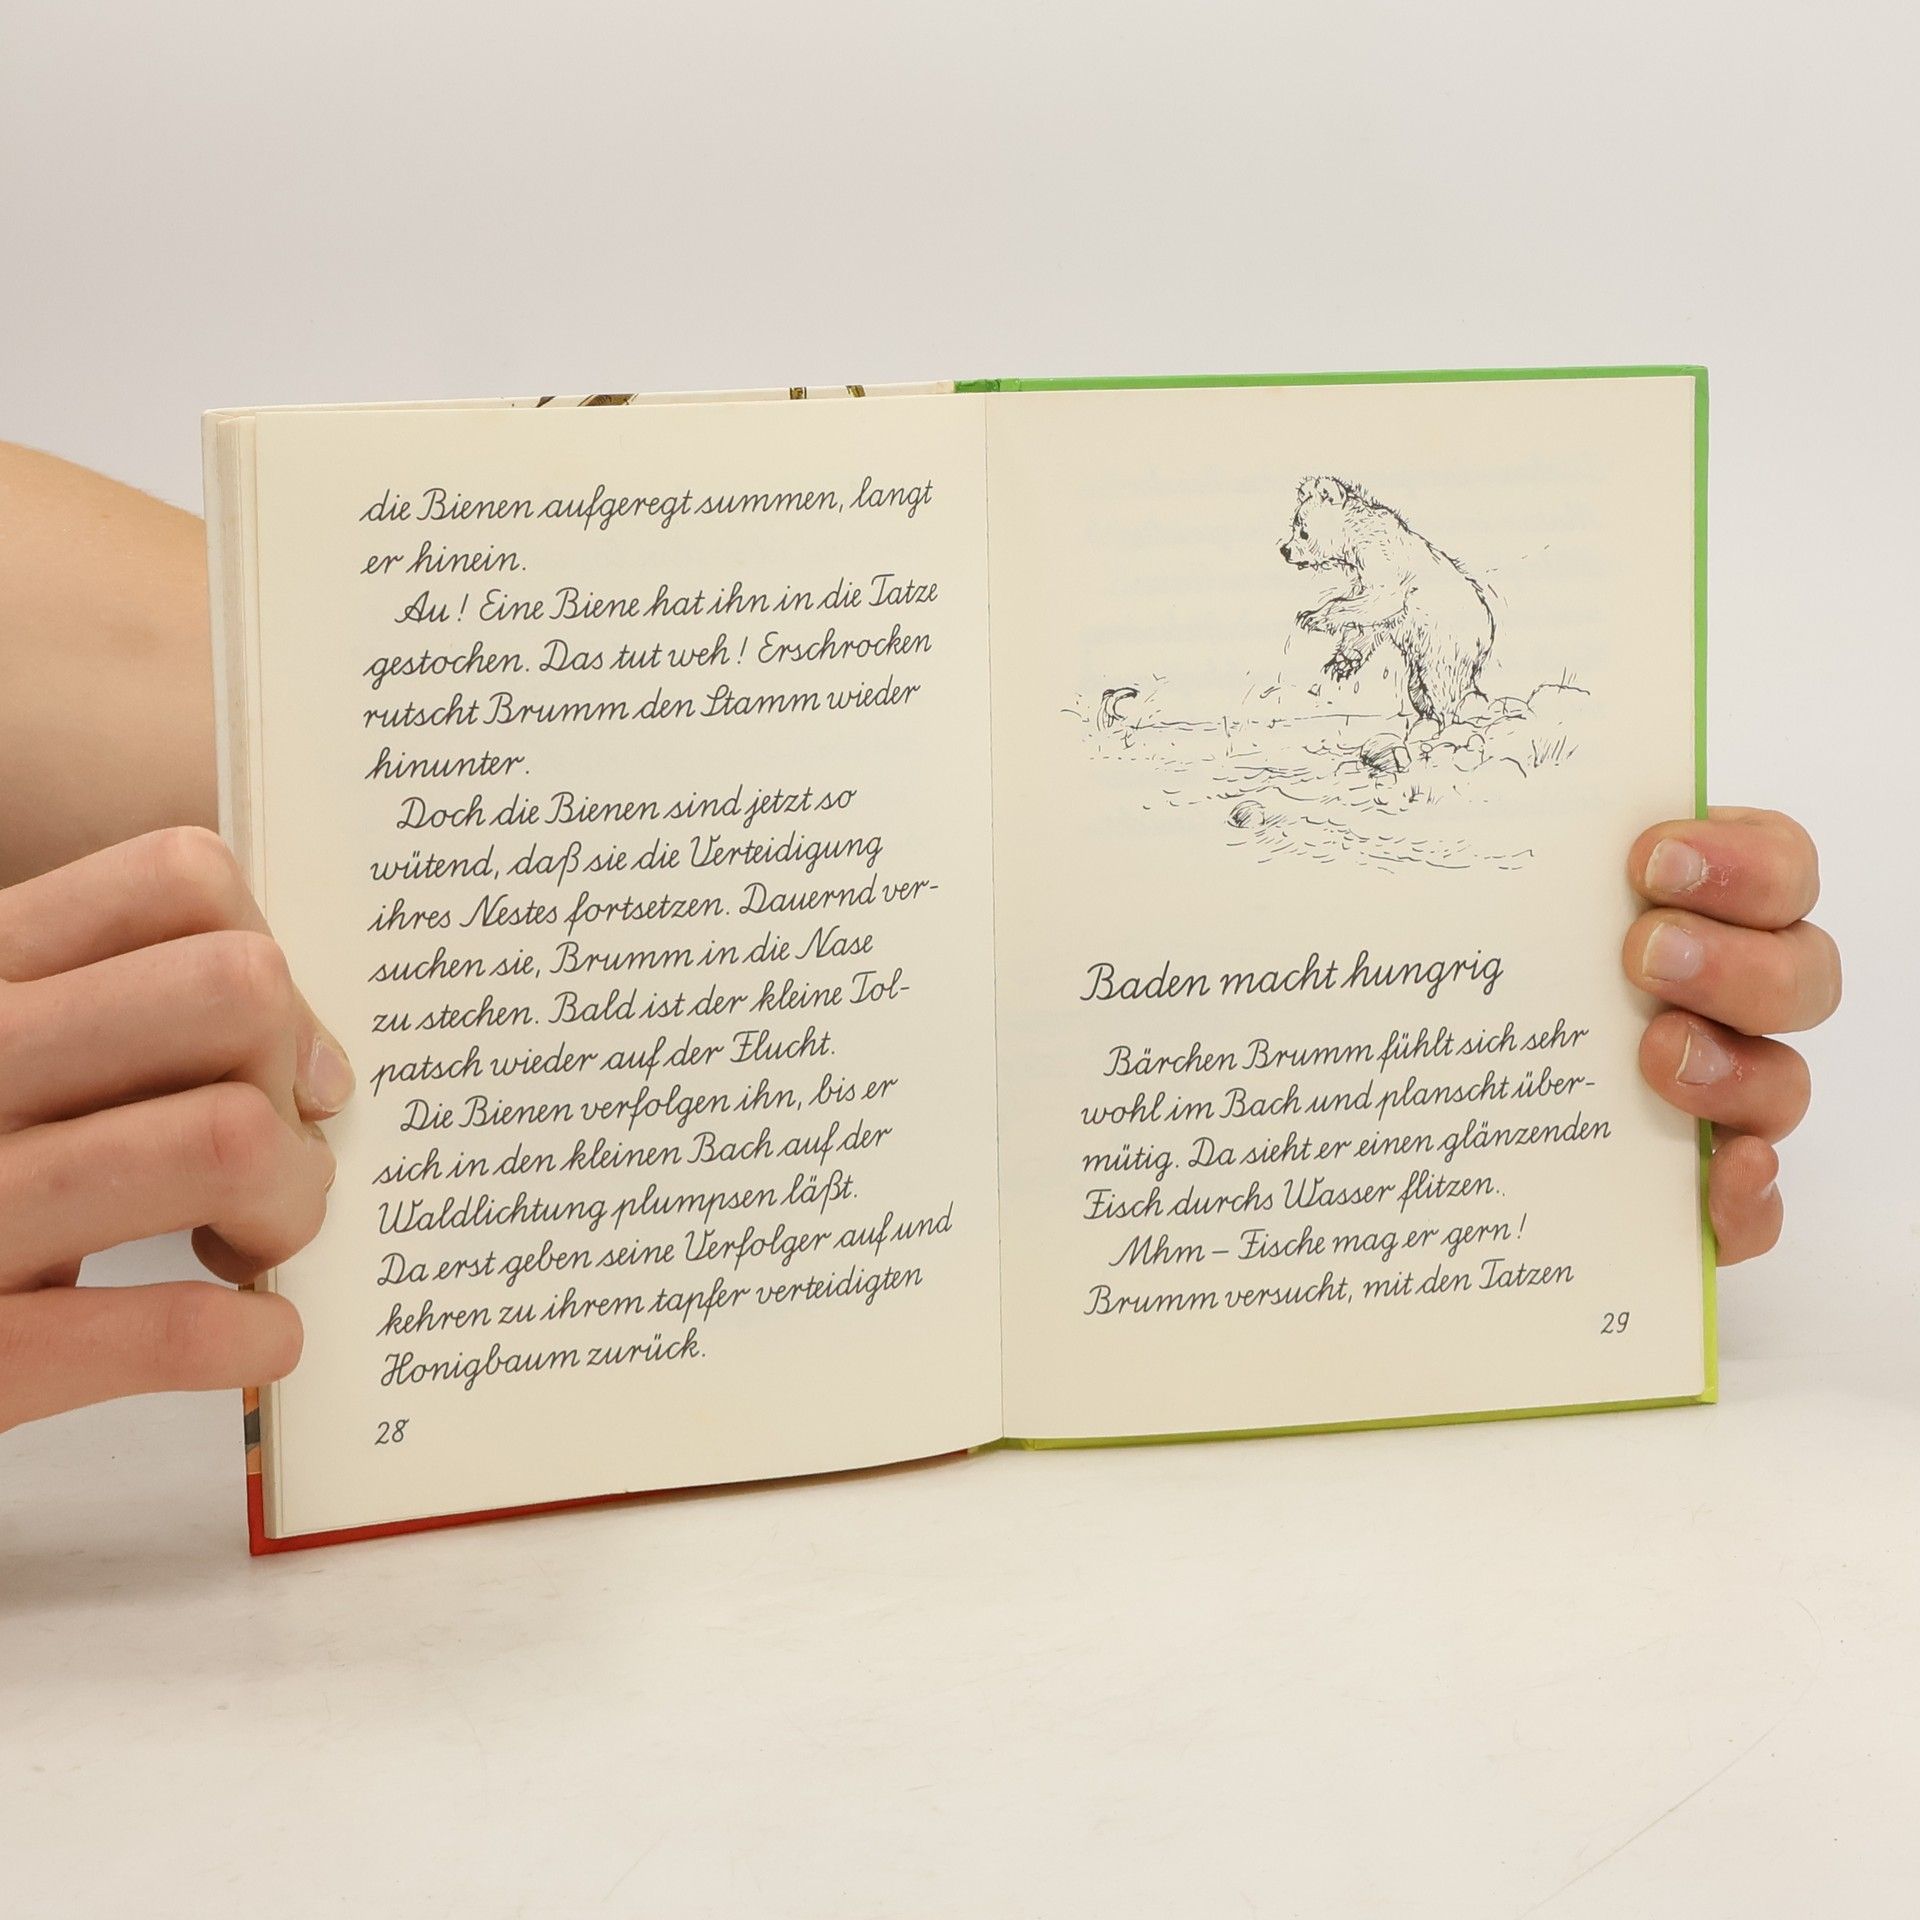 die Bienen aufgeregt summen, langt
er hinein.
Au! Eine Biene hat ihn in die Tatze
gestochen. Das tut weh! Erschrocken
rutscht Brumm den Stamm wieder
hinunter.
Doch die Bienen sind jetzt so
wütend, daß sie die Verteidigung
ihres Nestes fortsetzen. Dauernd ver-
suchen sie, Brumm in die Nase
zu stechen. Bald ist der kleine Tol-
patsch wieder auf der Flucht.
Die Bienen verfolgen ihn, bis er
sich in den kleinen Bach auf der
Waldlichtung plumpsen läßt.
Da erst geben seine Verfolger auf und
kehren zu ihrem tapfer verteidigten
Honigbaum zurück.
28
Baden macht hungrig
Bärchen Brumm fühlt sich sehr
wohl im Bach und planscht über-
mütig. Da sieht er einen glänzenden
Fisch durchs Wasser flitzen.
Mhm – Fische mag er gern!
Brumm versucht, mit den Tatzen
29